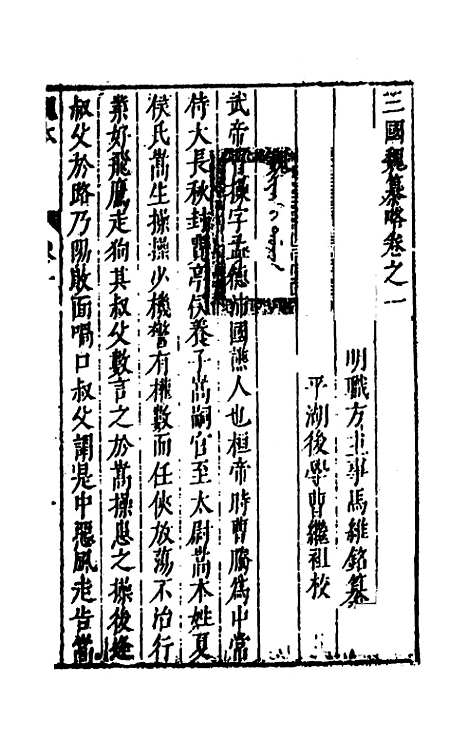 三國魏纂略卷之一
明職方主事馬維銘纂
平湖後學曹繼祖校
武帝曹操字孟德沛國譙人也桓帝時曹騰爲中常
侍大長秋封費亭侯養子嵩嗣官至太尉嵩本姓夏
侯氏嵩生操操少機警有權數而任俠放蕩不治行
業好飛鷹走狗其叔父數言之於嵩操患之操後逢
叔父於路乃陽敗面喎口叔父謂是中惡風走告嵩